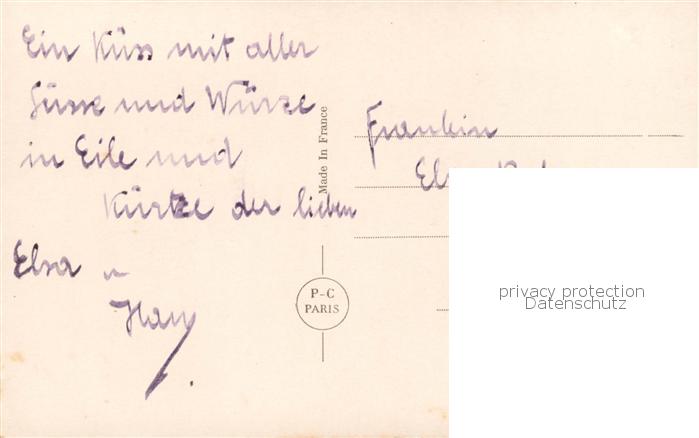 Ein Küss mit aller
Süsse und Würze
in Eile und
Kürtze der lieben
Elsa
Made In France
P-C
PARIS
Fraulein
privacy protection
Datenschutz